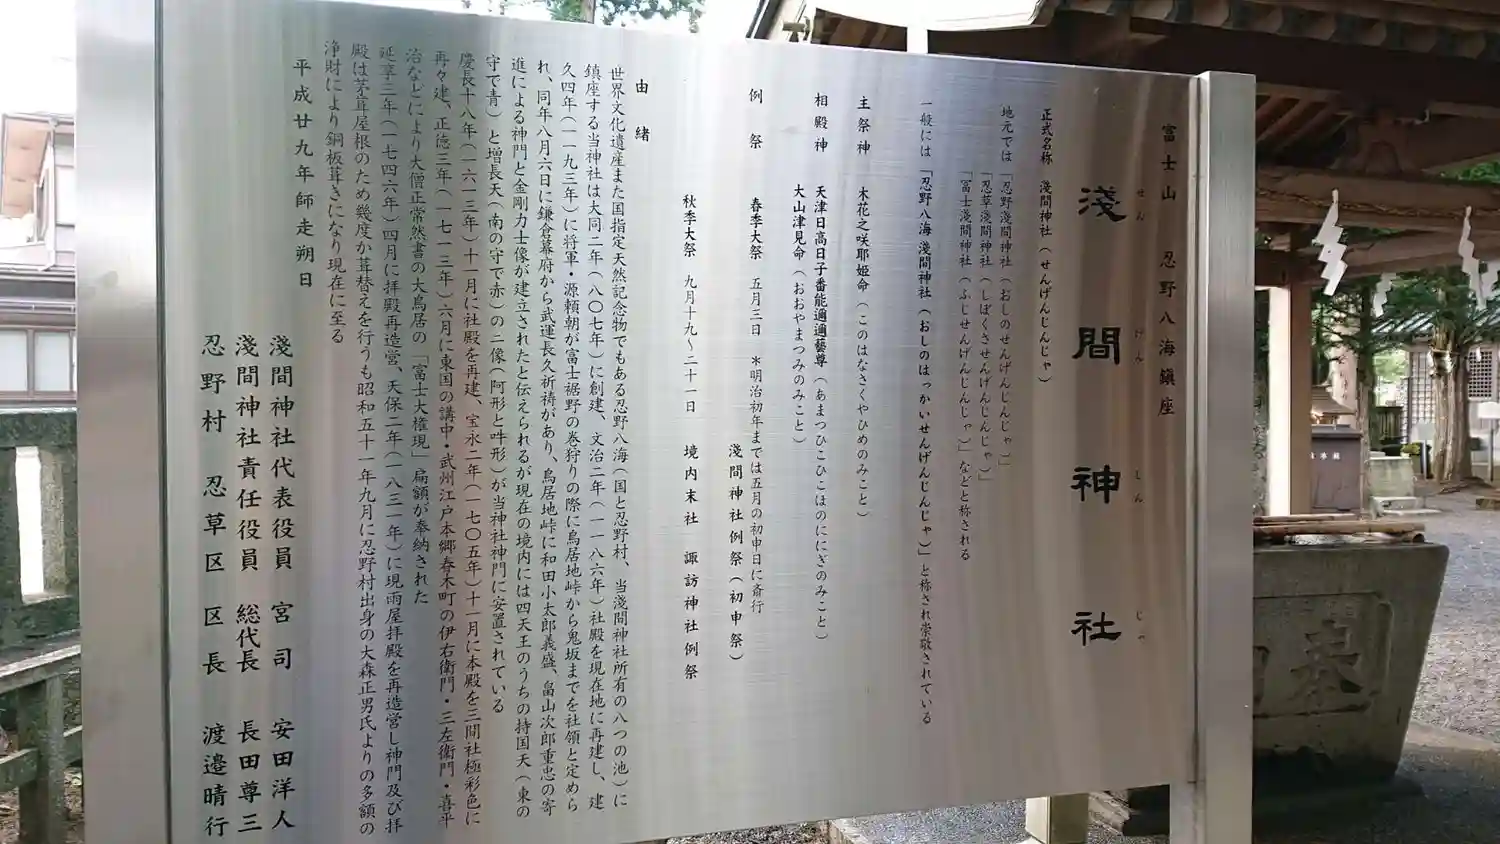 富士山　忍野八海鎮座
淺間神社
せん　げん　じん　じゃ
正式名称　淺間神社（せんげんじんじゃ）
地元では「忍野淺間神社（おしのせんげんじんじゃ）」
「忍草淺間神社（しぼくさせんげんじんじゃ）」
「冨士淺間神社（ふじせんげんじんじゃ）」などと称される
一般には「忍野八海 淺間神社（おしのはっかいせんげんじんじゃ）」と称され崇敬されている
主祭神　木花之咲耶姫命（このはなさくやひめのみこと）
相殿神　天津日高日子番能邇邇藝尊（あまつひこひこほのににぎのみこと）
大山津見命（おおやまつみのみこと）
例　祭　春季大祭　五月三日　＊明治初年までは五月の初申日に斎行
淺間神社例祭（初申祭）
秋季大祭　九月十九～二十一日　境内末社　諏訪神社例祭
由　緒
世界文化遺産また国指定天然記念物でもある忍野八海（国と忍野村、当淺間神社所有の八つの池）に
鎮座する当神社は大同二年（八〇七年）に創建、文治二年（一一八六年）社殿を現在地に再建し、建
久四年（一一九三年）に将軍・源頼朝が富士裾野の巻狩りの際に鳥居地峠から鬼坂までを社領と定めら
れ、同年八月六日に鎌倉幕府から武運長久祈祷があり、鳥居地峠に和田小太郎義盛、畠山次郎重忠の寄
進による神門と金剛力士像が建立されたと伝えられるが現在の境内には四天王のうちの持国天（東の
守で青）と増長天（南の守で赤）の二像（阿形と吽形）が当神社神門に安置されている
慶長十八年（一六一三年）十一月に社殿を再建、宝永二年（一七〇五年）十一月に本殿を三間社極彩色に
再々建、正徳三年（一七一三年）六月に東国の講中・武州江戸本郷春木町の伊右衛門・三左衛門・喜平
治などにより大僧正常然書の大鳥居の「富士大権現」扁額が奉納された
延享三年（一七四六年）四月に拝殿再造営、天保二年（一八三一年）に現雨屋拝殿を再造営し神門及び拝
殿は茅葺屋根のため幾度か葺替えを行うも昭和五十一年九月に忍野村出身の大森正男氏よりの多額の
浄財により銅板葺きになり現在に至る
平成廿九年師走朔日
淺間神社代表役員　宮司　安田洋人
淺間神社責任役員　総代長　長田尊三
忍野村　忍草区　区長　渡邉晴行